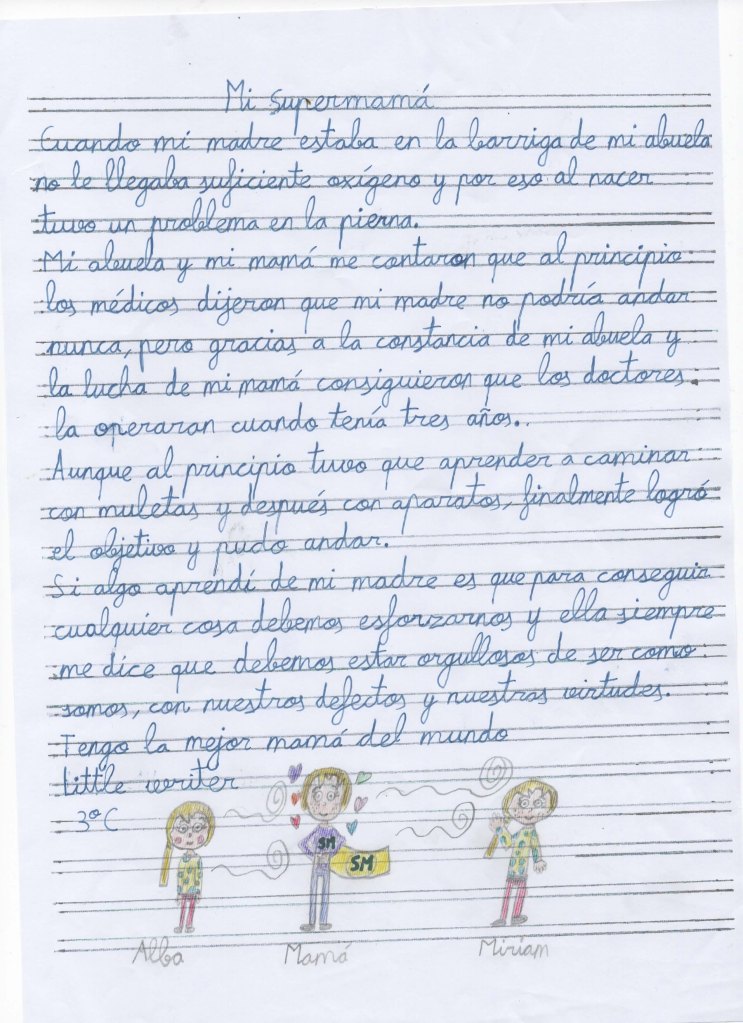 Mi supermamá
Cuando mi madre estaba en la barriga de mi abuela
no le llegaba suficiente oxígeno y por eso al nacer
tuvo un problema en la pierna.
Mi abuela y mi mamá me contaron que al principio
los médicos dijeron que mi madre no podría andar
nunca, pero gracias a la constancia de mi abuela y
la lucha de mi mamá consiguieron que los doctores
la operaran cuando tenía tres años..
Aunque al principio tuvo que aprender a caminar
con muletas y después con aparatos, finalmente logró
el objetivo y pudo andar.
Si algo aprendí de mi madre es que para conseguir
cualquier cosa debemos esforzarnos y ella siempre
me dice que debemos estar orgullosos de ser como
somos, con nuestros defectos y nuestras virtudes.
Tengo la mejor mamá del mundo
Little writer
3º C
SM
SM
Alba Mamá Miriam